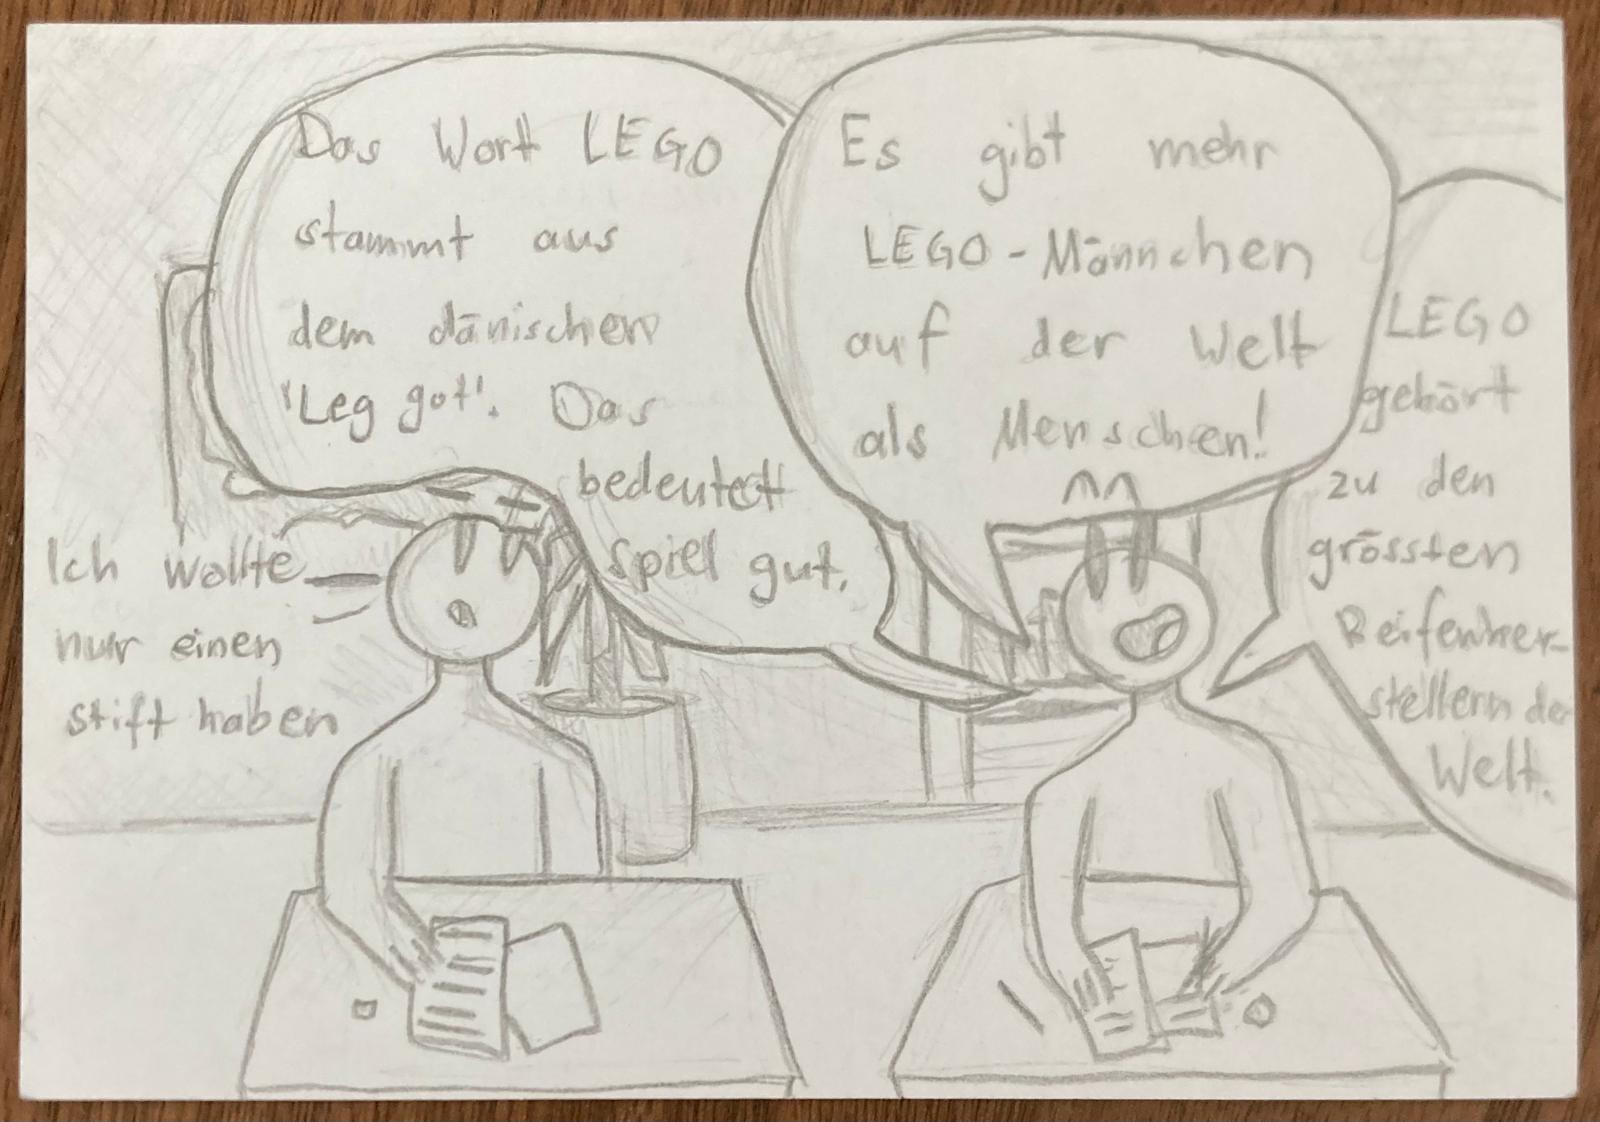 Das Wort LEGO
stammt aus
dem dänischen
'Leg got'. Das
bedeutet
spiel gut.
Es gibt mehr
LEGO-Männchen
auf der Welt
als Menschen!
LEGO
gehört
zu den
grössten
Reifenher-
stellern der
Welt.
Ich wollte
nur einen
stift haben